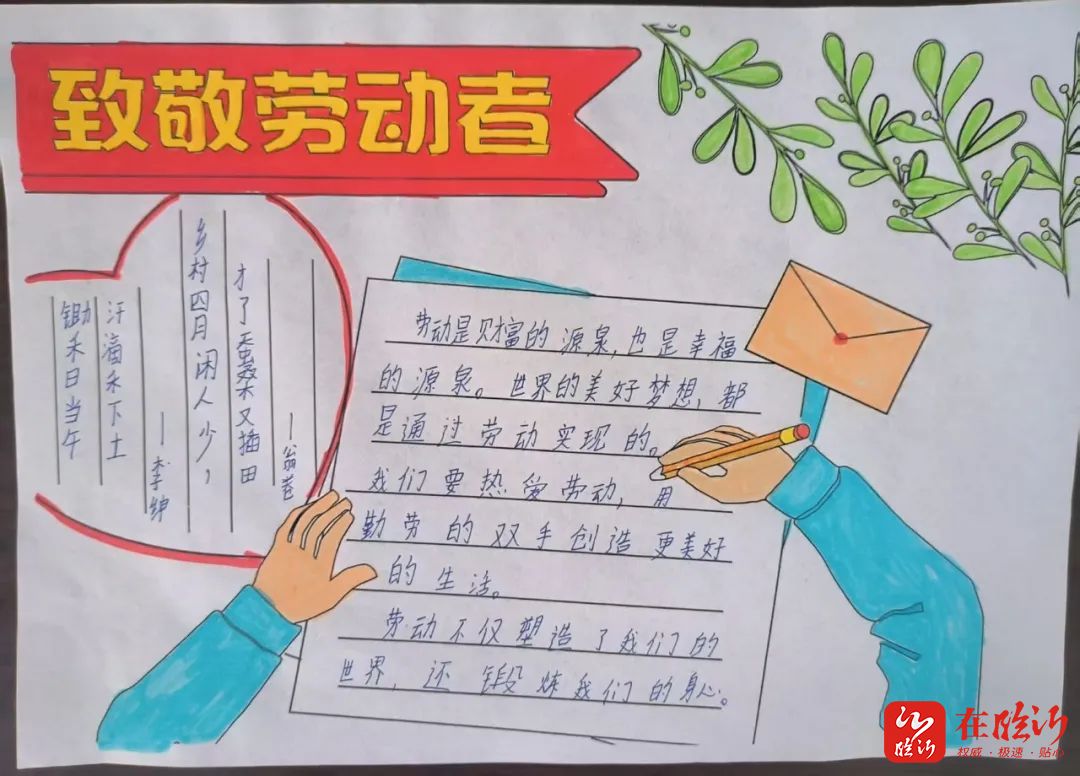 致敬劳动者
锄禾日当午
汗滴禾下土
——李绅
乡村四月闲人少，
才了蚕桑又插田
——翁卷
劳动是财富的源泉，也是幸福
的源泉。世界的美好梦想，都
是通过劳动实现的。
我们要热爱劳动，用
勤劳的双手创造更美好
的生活。
劳动不仅塑造了我们的
世界，还锻炼我们的身心。
临沂
在临沂
权威·极速·贴心